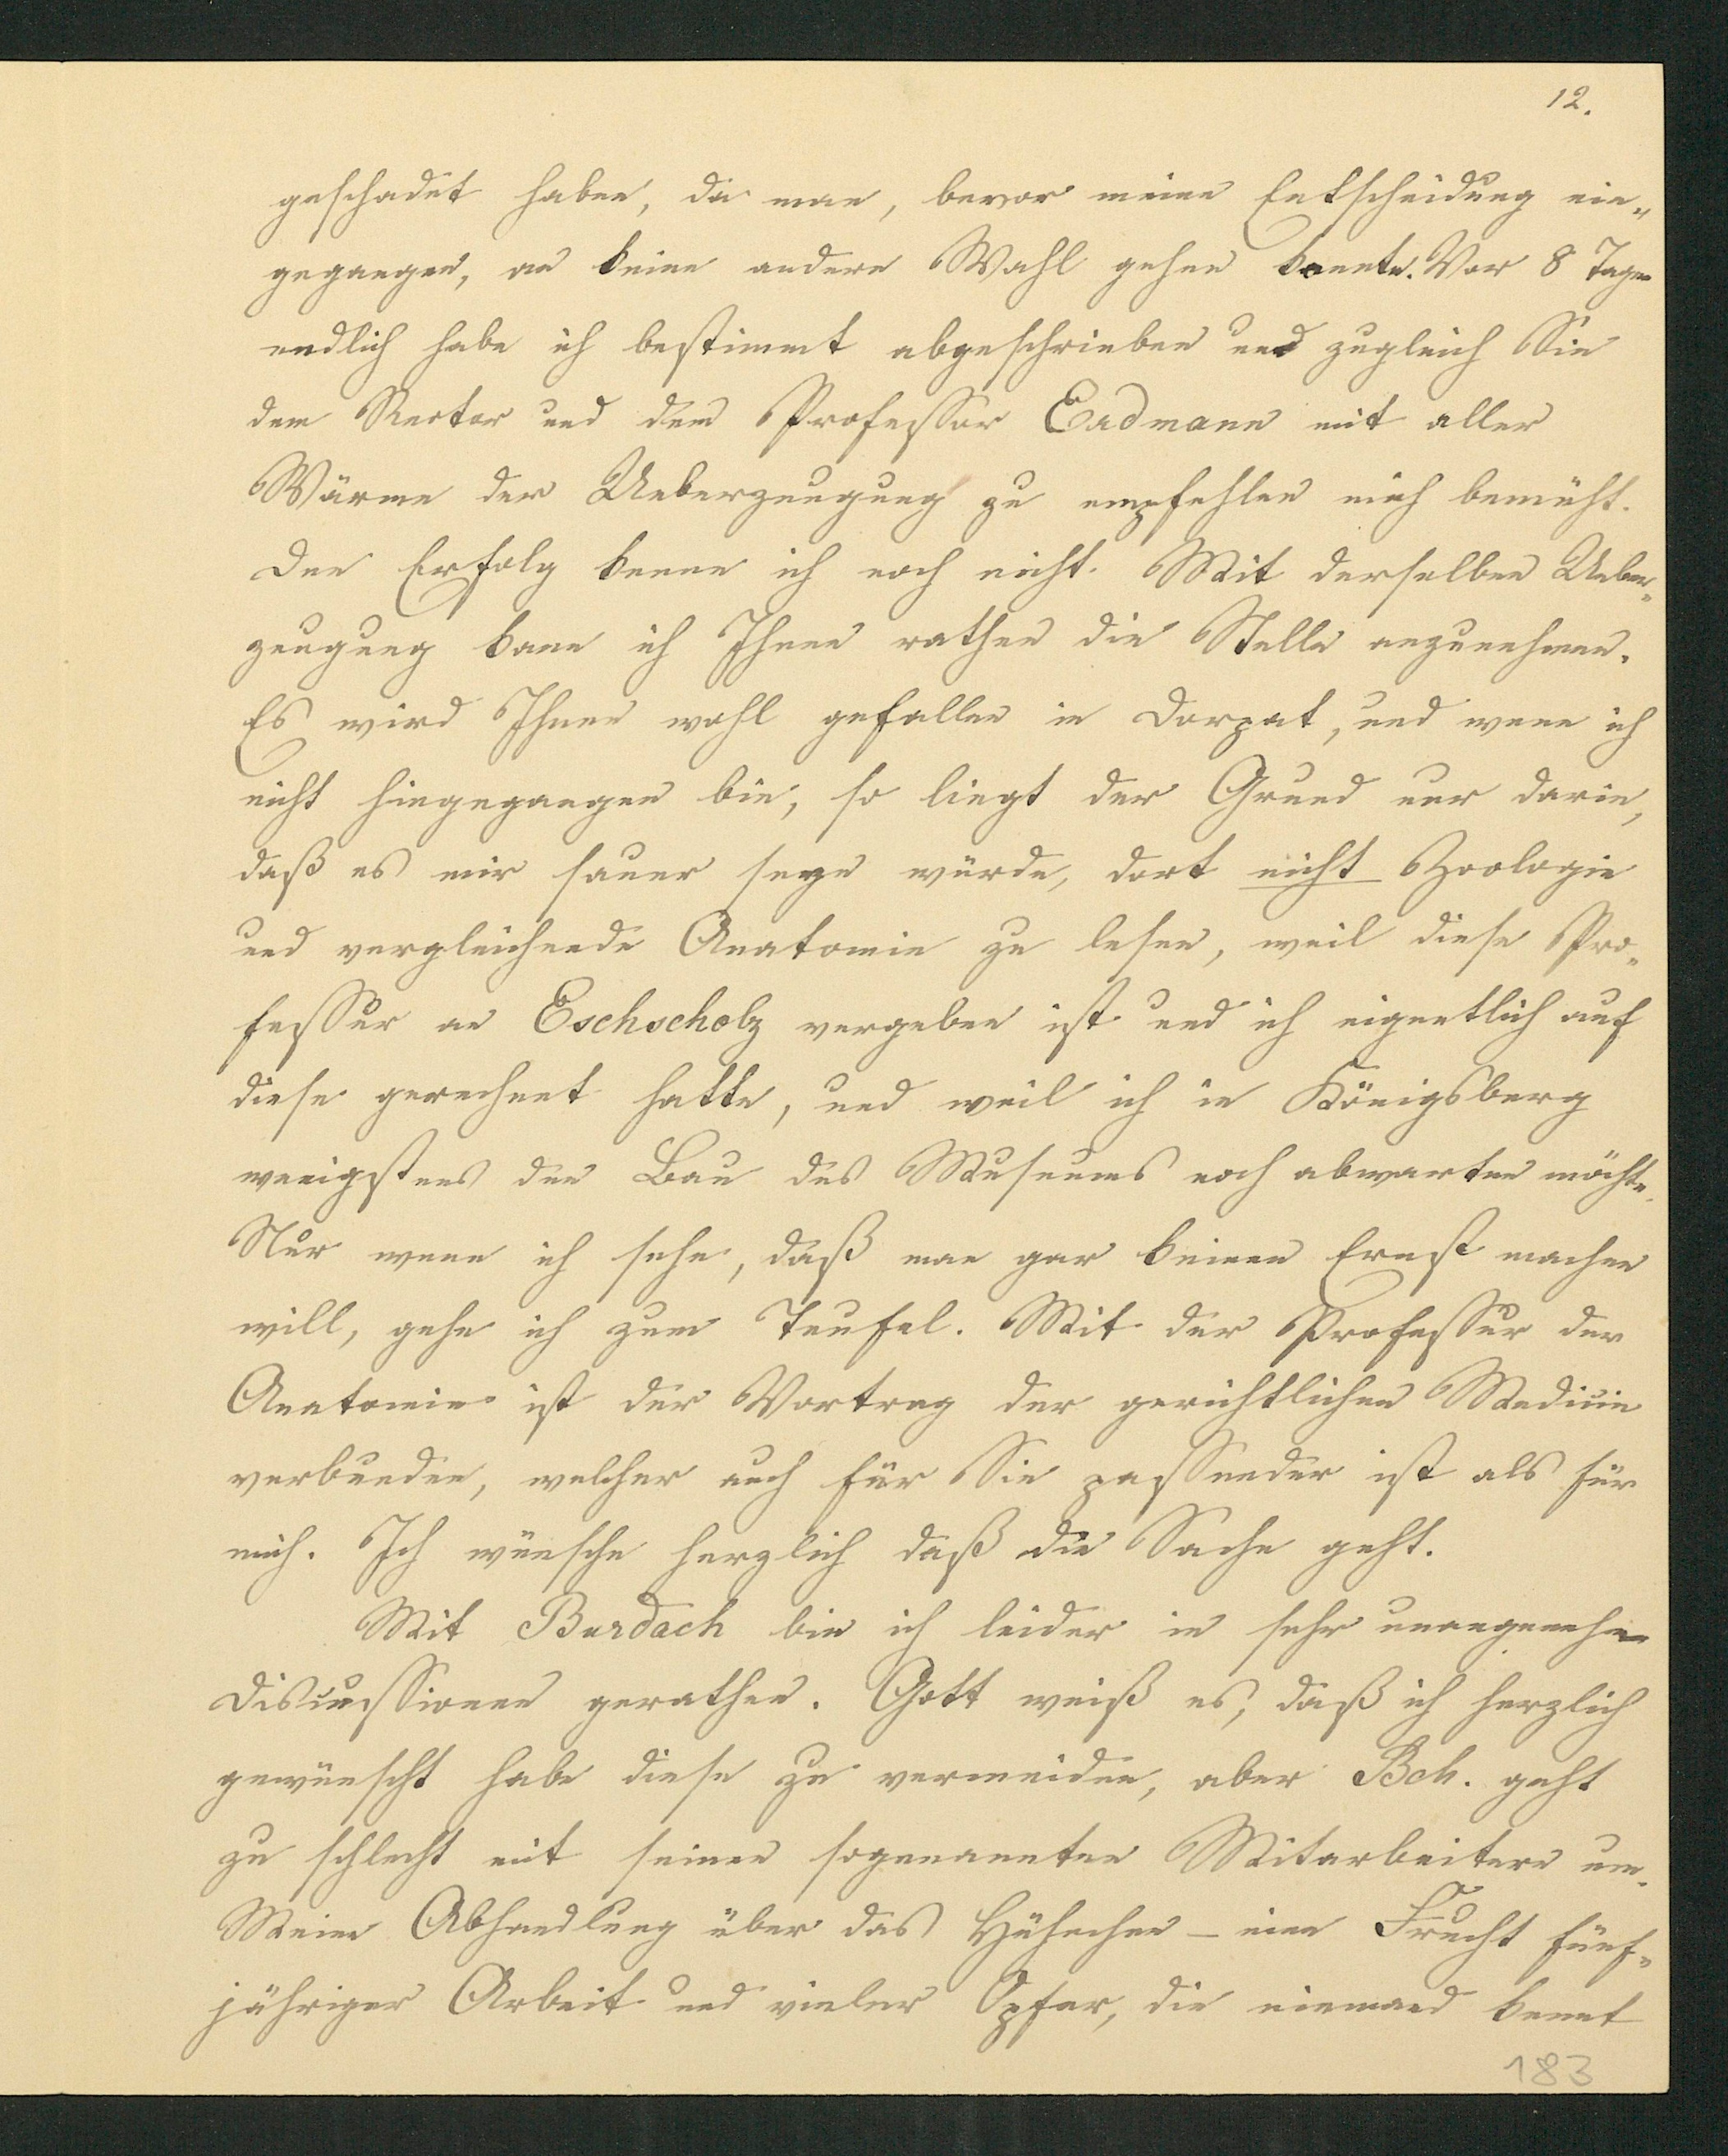 12.
geschadet haben, da man, bevor meine Entscheidung ein„
gegangen, an keine andere Wahl gehen konnte. Vor 8 Tagen
endlich habe ich bestimmt abgeschrieben und zugleich Sie
dem Rector und dem Professor Erdmann mit aller
Wärme der Ueberzeugung zu empfehlen mich bemüht.
Den Erfolg kenne ich noch nicht. Mit derselben Ueber„
zeugung kann ich Ihnen rathen die Stelle anzunehmen.
Es wird Ihnen wohl gefallen in Dorpat, und wenn ich
nicht hingegangen bin, so liegt der Grund nur darin,
daß es mir sauer seyn würde, dort nicht Zoologie
und vergleichende Anatomie zu lesen, weil diese Pro„
fessur an Eschscholz vergeben ist und ich eigentlich auf
diese gerechnet hatte, und weil ich in Königsberg
wenigstens den Bau des Museums noch abwarten möchte.
Nur wenn ich sehe, daß man gar keinen Ernst machen
will, gehe ich zum Teufel. Mit der Professur der
Anatomie ist der Vortrag der gerichtlichen Medicin
verbunden, welcher auch für Sie passender ist als für
mich. Ich wünsche herzlich daß die Sache geht.
Mit Burdach bin ich leider in sehr unangenehme
Discussionen gerathen. Gott weiß es, daß ich herzlich
gewünscht habe diese zu vermeiden, aber Bch. geht
zu schlecht mit seinen sogenannten Mitarbeitern um.
Meine Abhandlung über das Hühnchen – eine Frucht fünf„
jähriger Arbeit und vieler Opfer, die niemand kennt
183